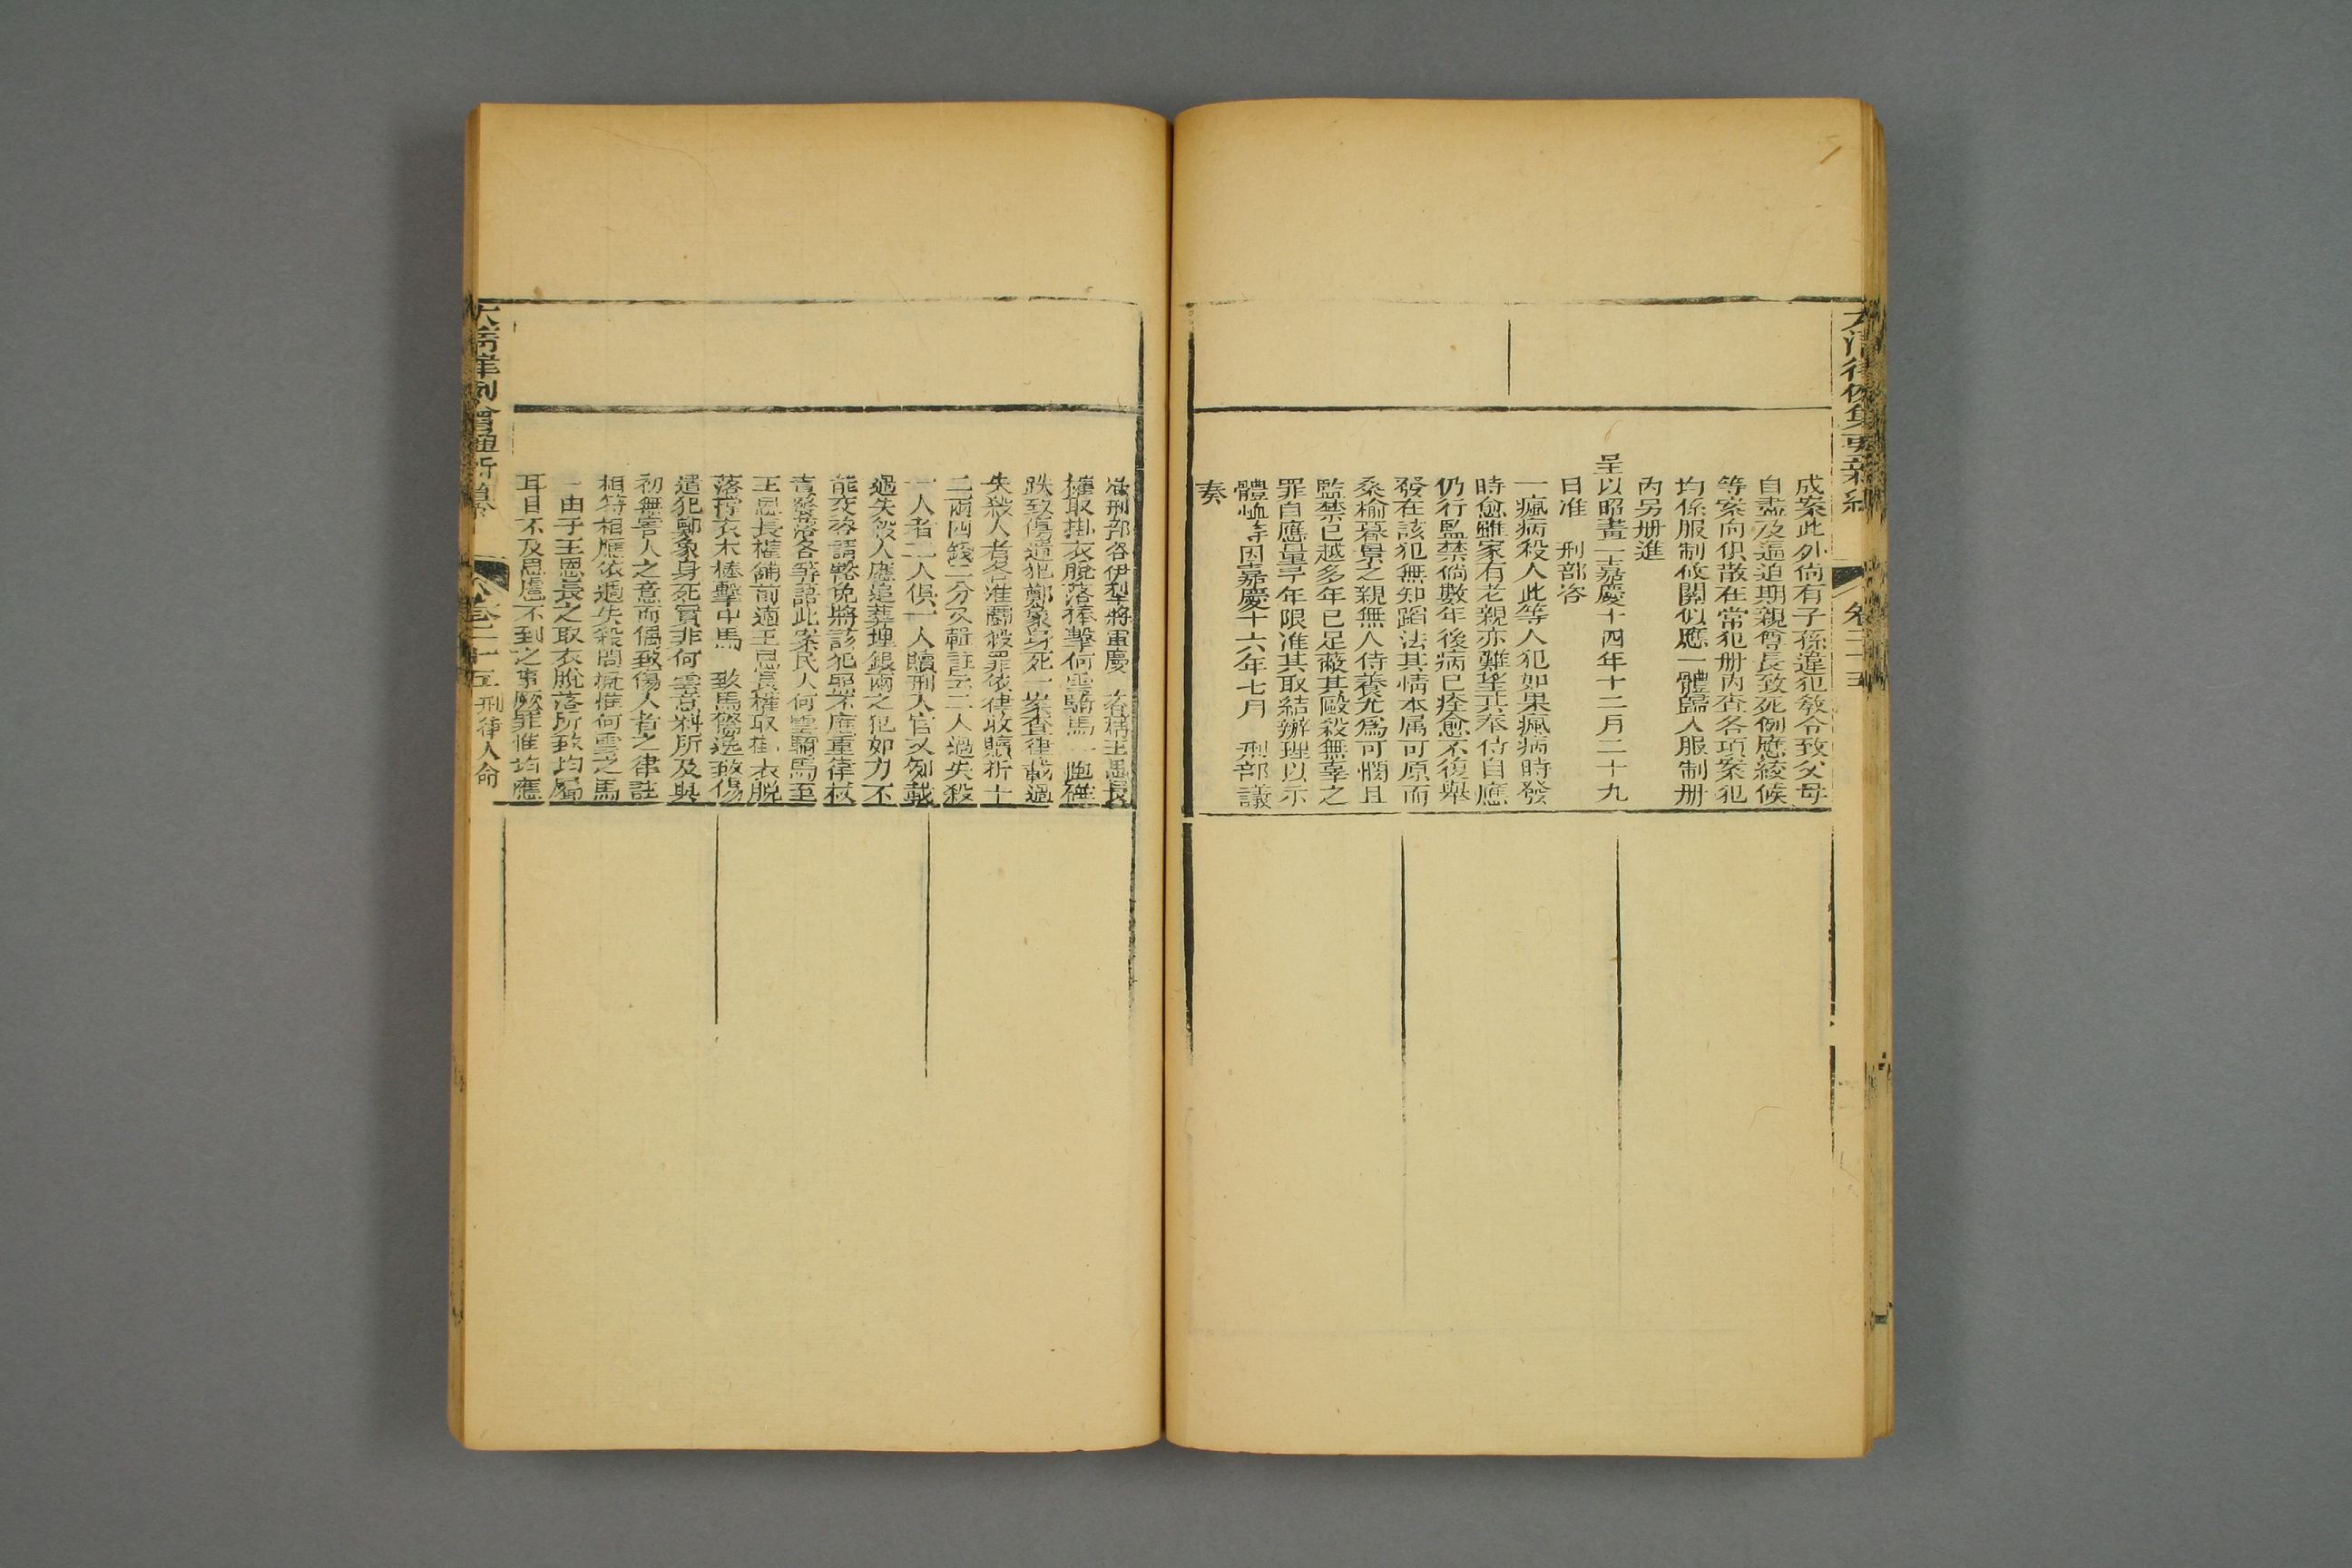 大清律例集要新編
卷二十五
成案此外倘有子孫違犯教令致父母
自盡及逼迫期親尊長致死例應絞候
等案向俱散在常犯册内查各項案犯
均係服制攸關似應一體歸入服制册
内另册進
呈以昭畫一嘉慶十四年十二月二十九
日准 刑部咨
一瘋病殺人此等人犯如果瘋病時發
時愈雖家有老親亦難望其奉侍自應
仍行監禁倘數年後病已痊愈不復舉
發在該犯無知蹈法其情本属可原而
桑榆暮景之親無人侍養尤爲可憫且
監禁已越多年已足蔽其毆殺無辜之
罪自應量予年限准其取結辦理以示
體恤等因嘉慶十六年七月 刑部議
奏
准刑部咨伊犁將軍慶 咨稱王恩長
權取掛衣脫落棒擊何雲騎馬一跑碰
跌致傷遣犯鄭象身死一案查律載過
失殺人者各准鬬殺罪依律收贖折十
二兩四錢二分又輯註云二人過失殺
一人者二人俱一人贖刑入官又例載
過失殺人應追葬埋銀兩之犯如力不
能交洛請豁免將該犯照不應重律杖
責發落各等語此案民人何雲騎馬至
王恩長權舖前適王恩長權取掛衣脫
落撐衣木棒擊中馬 致馬驚逸致傷
遣犯鄭象身死實非何雲意料所及與
初無害人之意而偶致傷人者之律註
相符相應依過失殺問擬惟何雲之馬
由于王恩長之取衣脫落所致均屬
耳目不及思慮不到之事厥罪惟均應
卷二十五 刑律人命